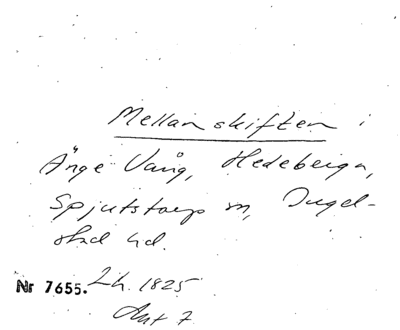 Mellanskiften i
Änge Vång, Hedeberga,
Spjutstorp sn, Ingel-
stad hd.
Nr 7655. 2 h. 1825
Akt 7